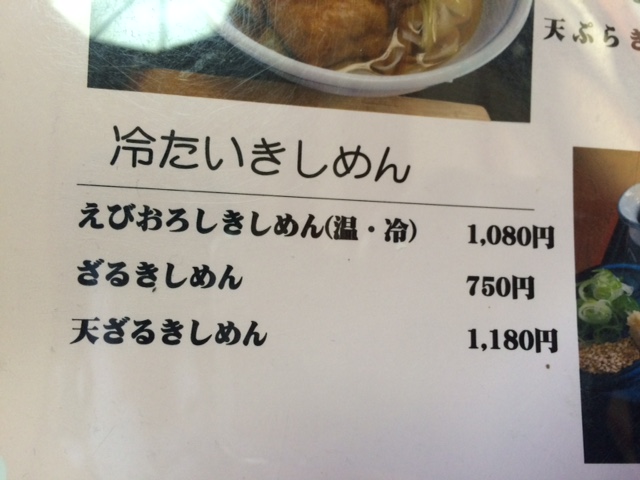 天ぷらき
冷たいきしめん
えびおろしきしめん(温・冷) 1,080円
ざるきしめん 750円
天ざるきしめん 1,180円